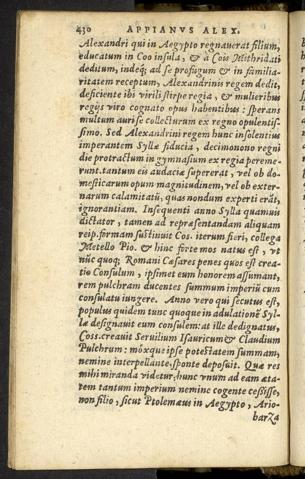 430 APPIANVS ALEX.
Alexandri qui in Aegypto regnauerat filium,
educatum in Coo insula, & à Cois Mithridati
deditum, indeq; ad se profugum & in familia-
ritatem receptum, Alexandrinis regem dedit,
deficiente ibi virili stirpe regia, & mulieribus
regijs viro cognato opus habentibus : sperans
multum auri se collecturum ex regno opulentis-
simo. Sed Alexandrini regem hunc insolentius
imperantem Syllæ fiducia, decimonono regni
die protractum in gymnasium ex regia pereme-
runt. tantum eis audaciæ supererat, vel ob do-
mesticarum opum magnitudinem, vel ob exter-
narum calamitatū, quas nondum experti erāt,
ignorantiam. Insequenti anno Sylla quamuis
dictator, tamen ad repræsentandam aliquam
reip. formam sustinuit Cos. iterum fieri, collega
Metello Pio. & hinc forte mos natus est, vt
nūc quoq; Romani Cæsares penes quos est crea-
tio Consulum, ipsimet eum honorem assumant,
rem pulchram ducentes summum imperiū cum
consulatu iungere. Anno vero qui secutus est,
populus quidem tunc quoque in adulationē Syl-
læ designauit eum consulem: at ille dedignatus,
Coss. creauit Seruilium Isauricum & Claudium
Pulchrum: móxque ipse potestatem summam,
nemine interpellante, sponte deposuit. Quæ res
mihi miranda videtur, hunc vnum ad eam æta-
tem tantum imperium nemine cogente cessisse,
non filio, sicut Ptolemæus in Aegypto, Ario-
barza